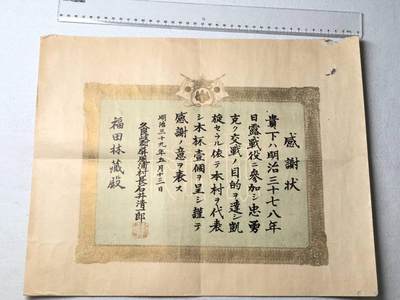 感謝狀
貴下ハ明治三十七八年
日露戰役ニ參加シ忠勇
克ク交戰ノ目的ヲ達シ凱
旋セラル依テ本村ヲ代表
シ木杯壹個ヲ呈シ謹テ
感謝ノ意ヲ表ス
明治三十九年五月十三日
屏風浦村長石井清一郎
福田林藏殿